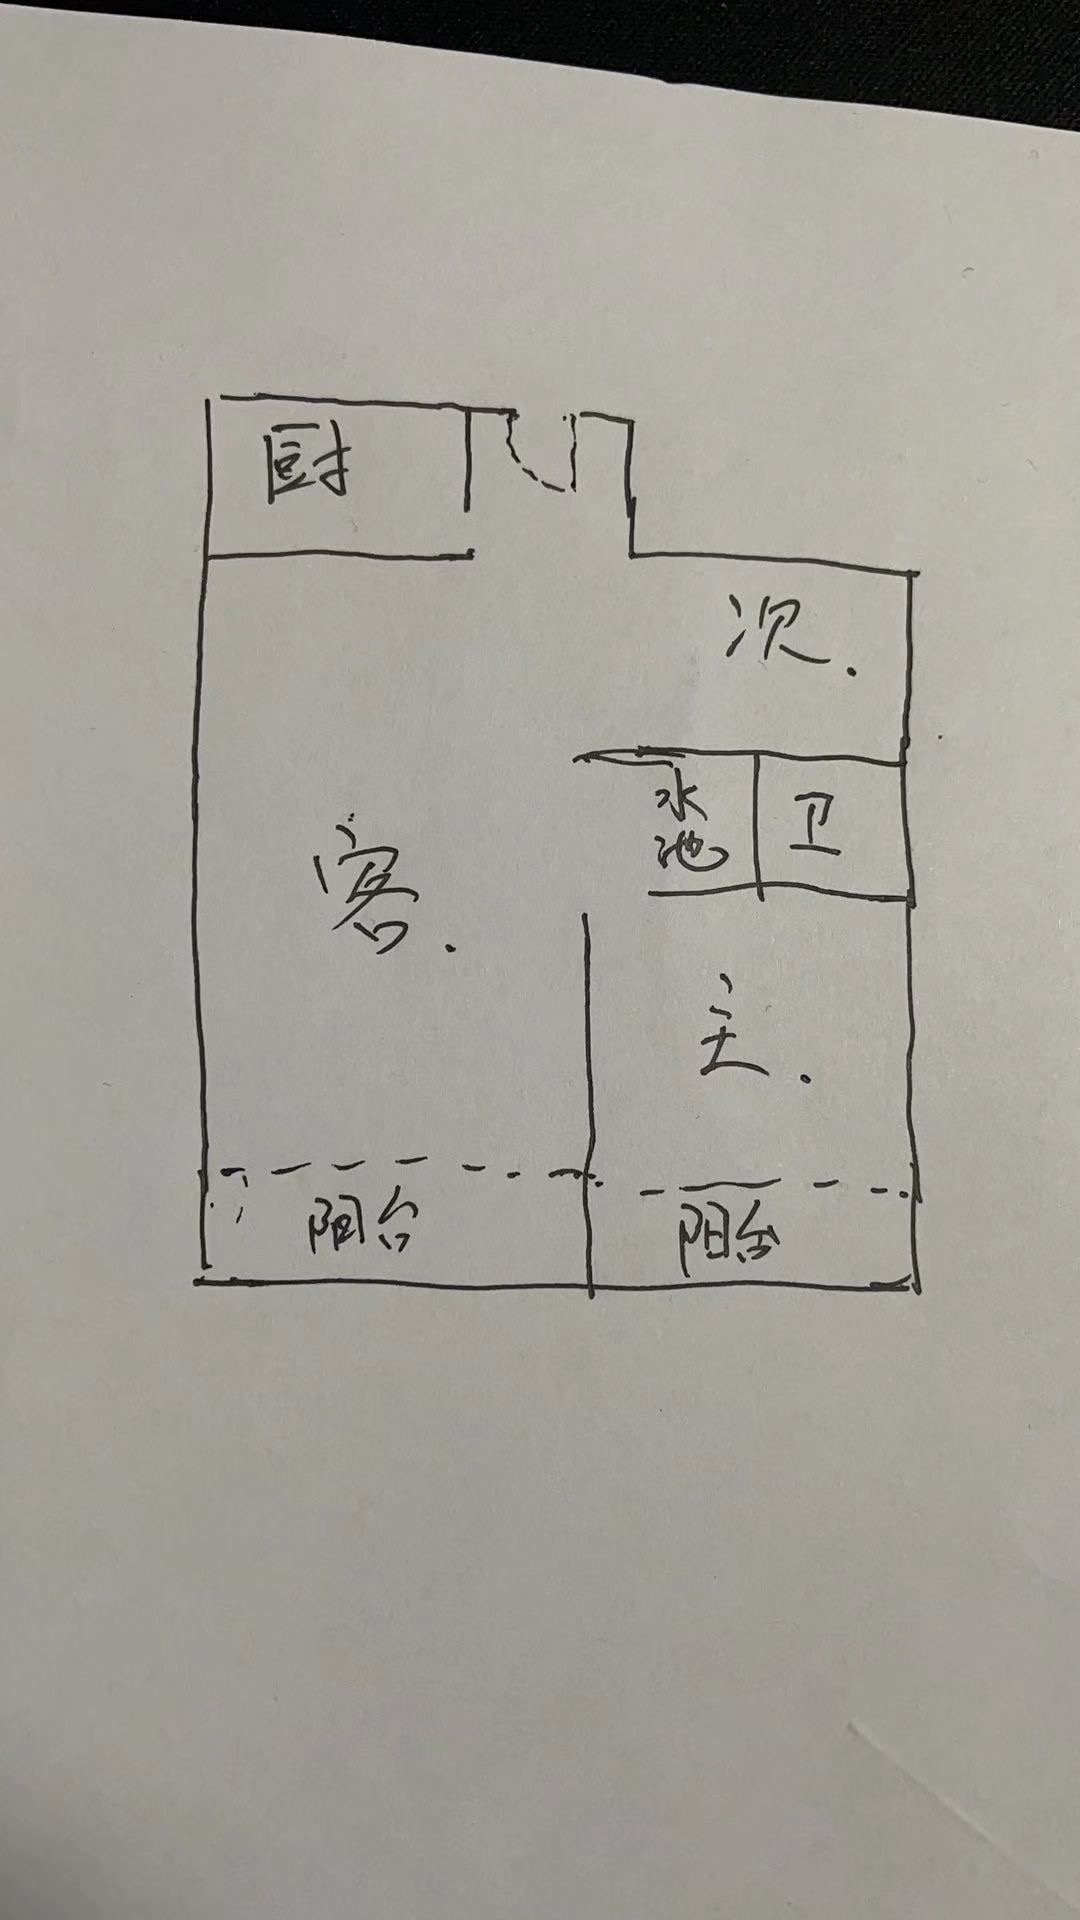 厨
次.
水
池
卫
客.
主.
阳台
阳台